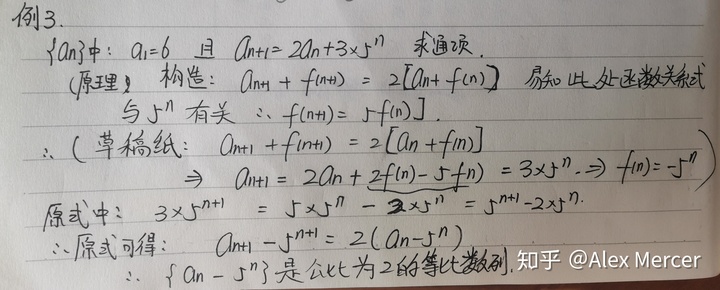 例3.
{an}中: a₁=6 且 an+1=2an+3×5ⁿ 求通项.
(原理) 构造: an+1 + f(n+1) = 2[an+f(n)] 易知此处函数关系式
与5ⁿ有关 ∴ f(n+1)= 5f(n)].
∴ (草稿纸: an+1 + f(n+1) = 2[an + f(n)]
⇒ an+1 = 2an + 2f(n) - 5f(n) = 3×5ⁿ. ⇒ f(n)=-5ⁿ)
原式中: 3×5ⁿ⁺¹ = 5×5ⁿ - 2×5ⁿ = 5ⁿ⁺¹-2×5ⁿ.
∴原式可得: an+1 - 5ⁿ⁺¹ = 2(an-5ⁿ)
∴ {an - 5ⁿ}是公比为2的等比数列.
知乎 @Alex Mercer